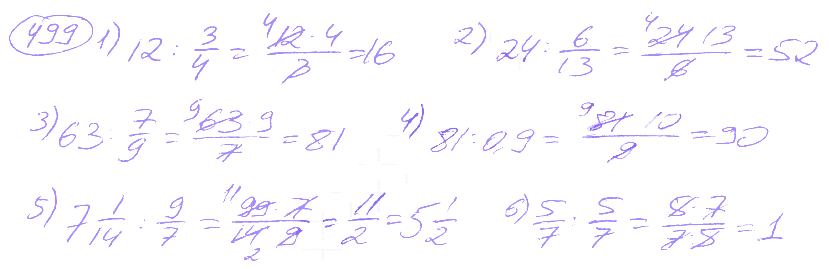 499 1) 12 : 3/4 = 12 · 4/3 = 16 2) 24 : 6/13 = 24 13/6 = 52
3) 63 : 7/9 = 63 9/7 = 81 4) 81 : 0,9 = 81 10/9 = 90
5) 7 1/14 : 9/7 = 99 · 7/14 9 = 11/2 = 5 1/2 6) 5/7 : 5/7 = 5 · 7/7 · 5 = 1